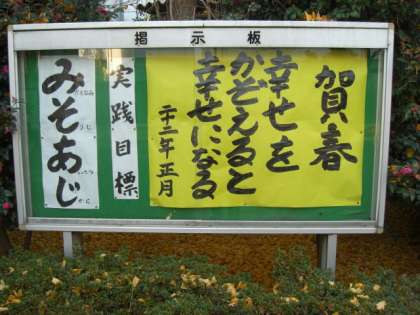 掲示板
賀春
幸せを
かぞえると
幸せになる
二十二年正月
実践目標
みそあじ